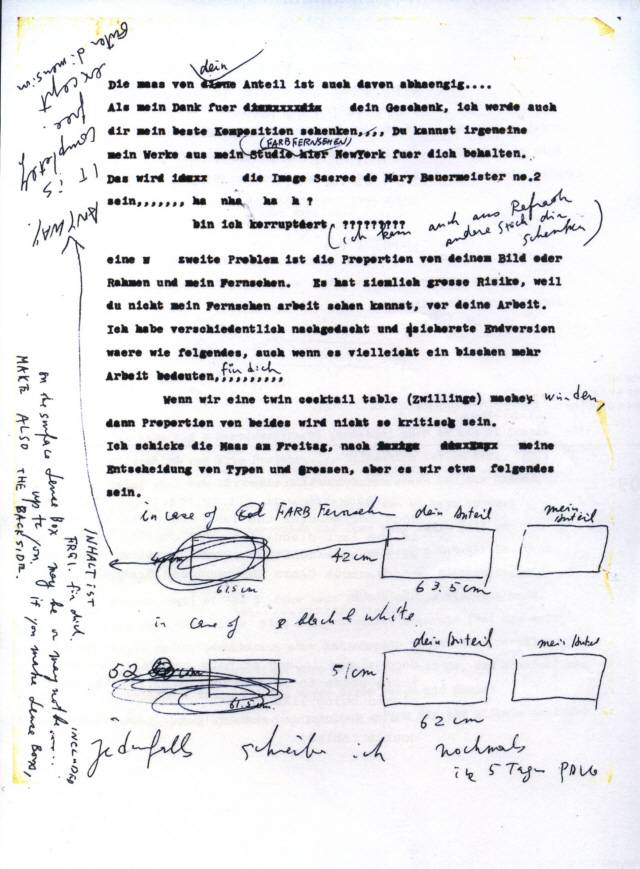 dein
Die maas von diene Anteil ist auch davon abhaengig....
Als mein Dank fuer dixxxxxxdix dein Geschenk, ich werde auch
dir mein beste Komposition schenken,,,. Du kannst irgeneine
(FARBFERNSEHEN)
mein Werke aus mein Studie hier NewYork fuer dich behalten.
Das wird idxxx die Image Sacree de Mary Bauermeister no.2
sein,,,,,,, ha nha, ha h ?
bin ich korruptüert ?????????
(ich kann auch aus Refresh
andere Stück dir
schenken)
eine w zweite Problem ist die Proportion von deinem Bild oder
Rahmen und mein Fernsehen. Es hat ziemlich grosse Risiko, weil
du nicht mein Fernsehen arbeit sehen kannst, vor deine Arbeit.
Ich habe verschiedentlich nachgedacht und sicherste Endversion
waere wie folgendes, auch wenn es vielleicht ein bischen mehr
Arbeit bedeuten,,,,,,,,,, für dich
Wenn wir eine twin cocktail table (Zwillinge) machey würden,
dann Proportion von beides wird nicht so kritisch sein.
Ich schicke die Maas am Freitag, nach meine
Entscheidung von Typen und groessen, aber es wir etwa folgendes
sein.
in case of FARB Fernsehn dein Anteil mein Anteil
42 cm
61.5 cm 63.5 cm
in case of black & white
dein Anteil mein Anteil
52 cm 51 cm
61.5 cm 62 cm
Jedenfalls schreibe ich nochmals
in 5 Tagen PAIK
INHALT IST
FREI. für dich.
outer dimension
except
free.
completely
IT IS
ANYWAY.
on the surface Lense Box may be or may not be.... INCLUDED
up to you. if you make Lense Boxes,
MAKE ALSO THE BACKSIDE.